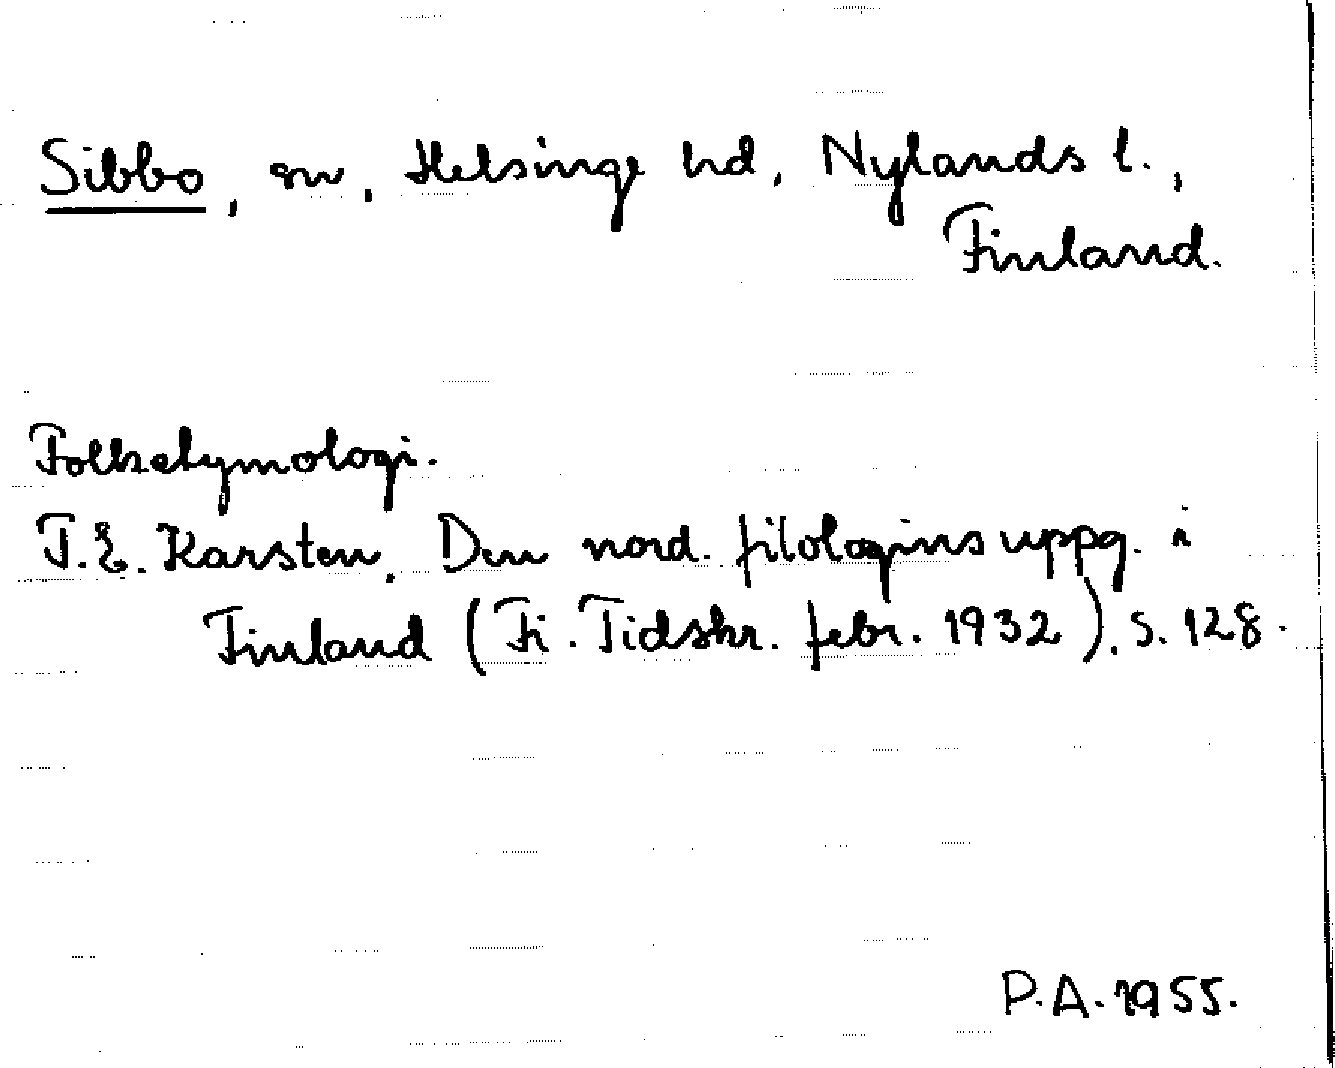 Sibbo, sn, Helsinge hd, Nylands l.,
Finland.
Folketymologi.
T.E. Karsten, Den nord. filologins uppg. i
Finland (Fi. Tidskr. febr. 1932), s. 128.
P.A. 1955.